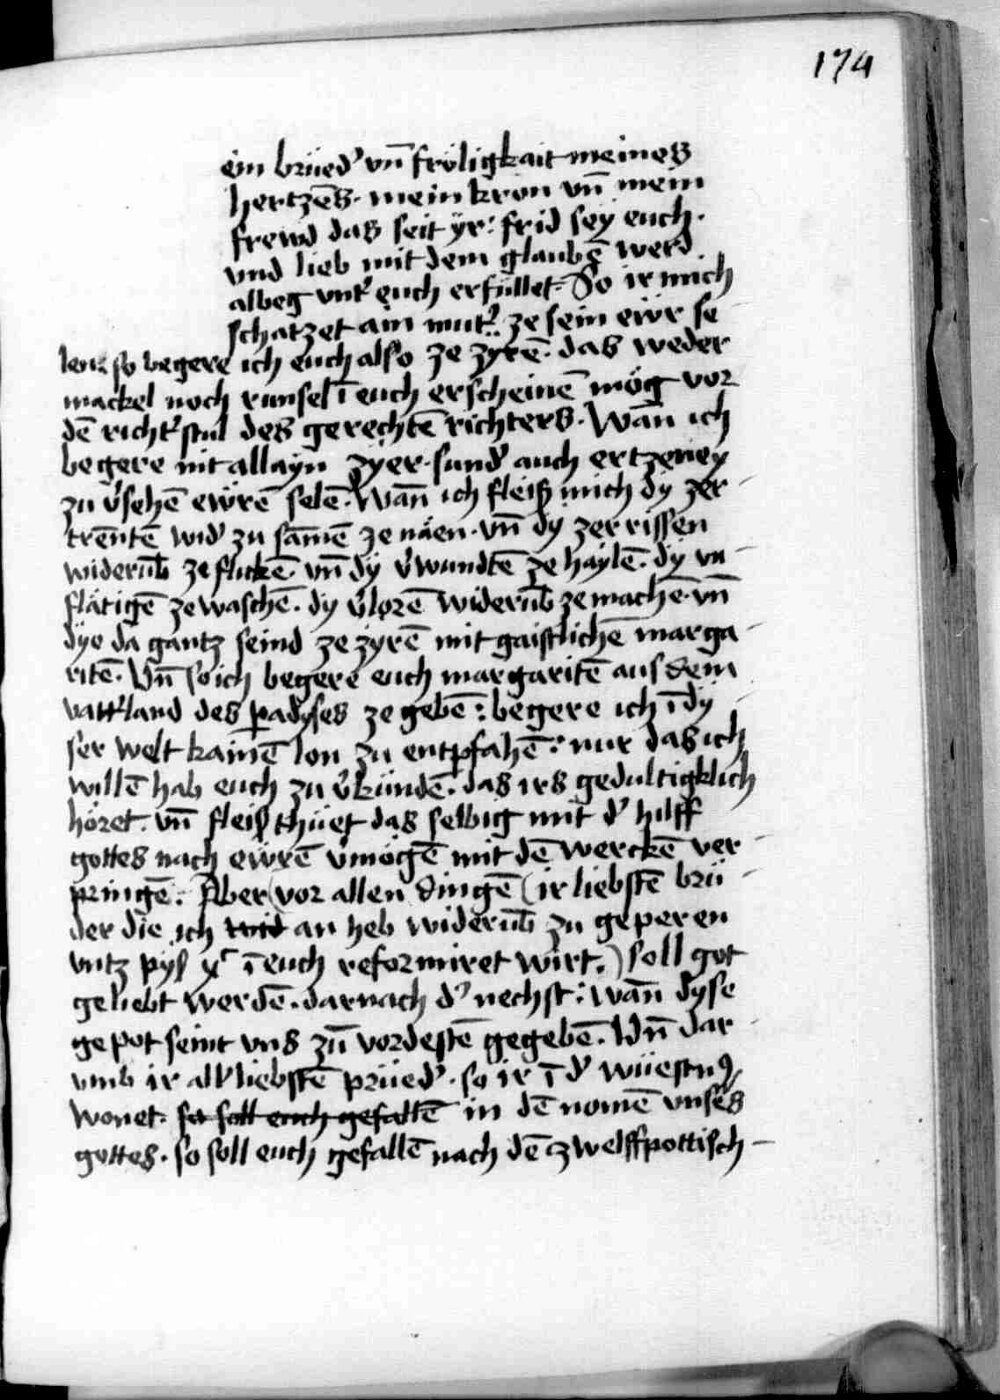 174
ein brüed' vn̄ fröligkait meines
hertzēs. mein kron vn̄ mein
frewd das seit ÿr: frid seÿ euch.
vnd lieb mit dem glaubē werd
albeg vnt' euch erfüllet. So ir mich
schatzet ain mut' ze sein ewr se
len: so begere ich euch also ze zÿrē. das weder
mackel noch runsel ī euch erscheinē mög vor
dē richt'stul des gerechtē richters. Wān ich
begere nit allayn zÿer. sund' auch ertzeneÿ
zu v'sehē ewrē selē. Wān ich fleiß mich dy zer
trēntē wid' zu sāmē ze näen. vn̄ dy zerrissen
widerūb ze flickē. vn̄ dÿ v'wundtē ze haylē. dÿ vn
flätigē ze waschē. dy v'lorē widerūb ze machē. vn̄
dÿe da gantz seind ze zyrē mit gaistlichē marga
ritē. Vn̄ so ich begere euch margaritē aus dem
vatt'land des padyses ze gebē: begere ich ī dÿ
ser welt kainē lon zu entpfahē: nur das ich
willē hab euch zu v'kündē. das irs gedultigklich
höret. vn̄ fleiß thüet das selbig mit d' hilff
gottes nach ewrē v'mögē mit dē werckē ver
pringē. Aber (vor allen dingē (ir liebstē brü
der die ich wid an heb widerūb zu geperen
vntz pyß x̄ ī euch reformiret wirt.) soll got
geliebt werdē. darnach d' nechst: Wān dyse
gepot seint vns zū vordestē gegebē. Vn̄ dar
vmb ir all'liebstē prüed'. so ir ī d' wüestn9
wonet. so soll euch gefallē in dē nomē vnsēs
gottes. so soll euch gefallē nach dē zwelffpottisch